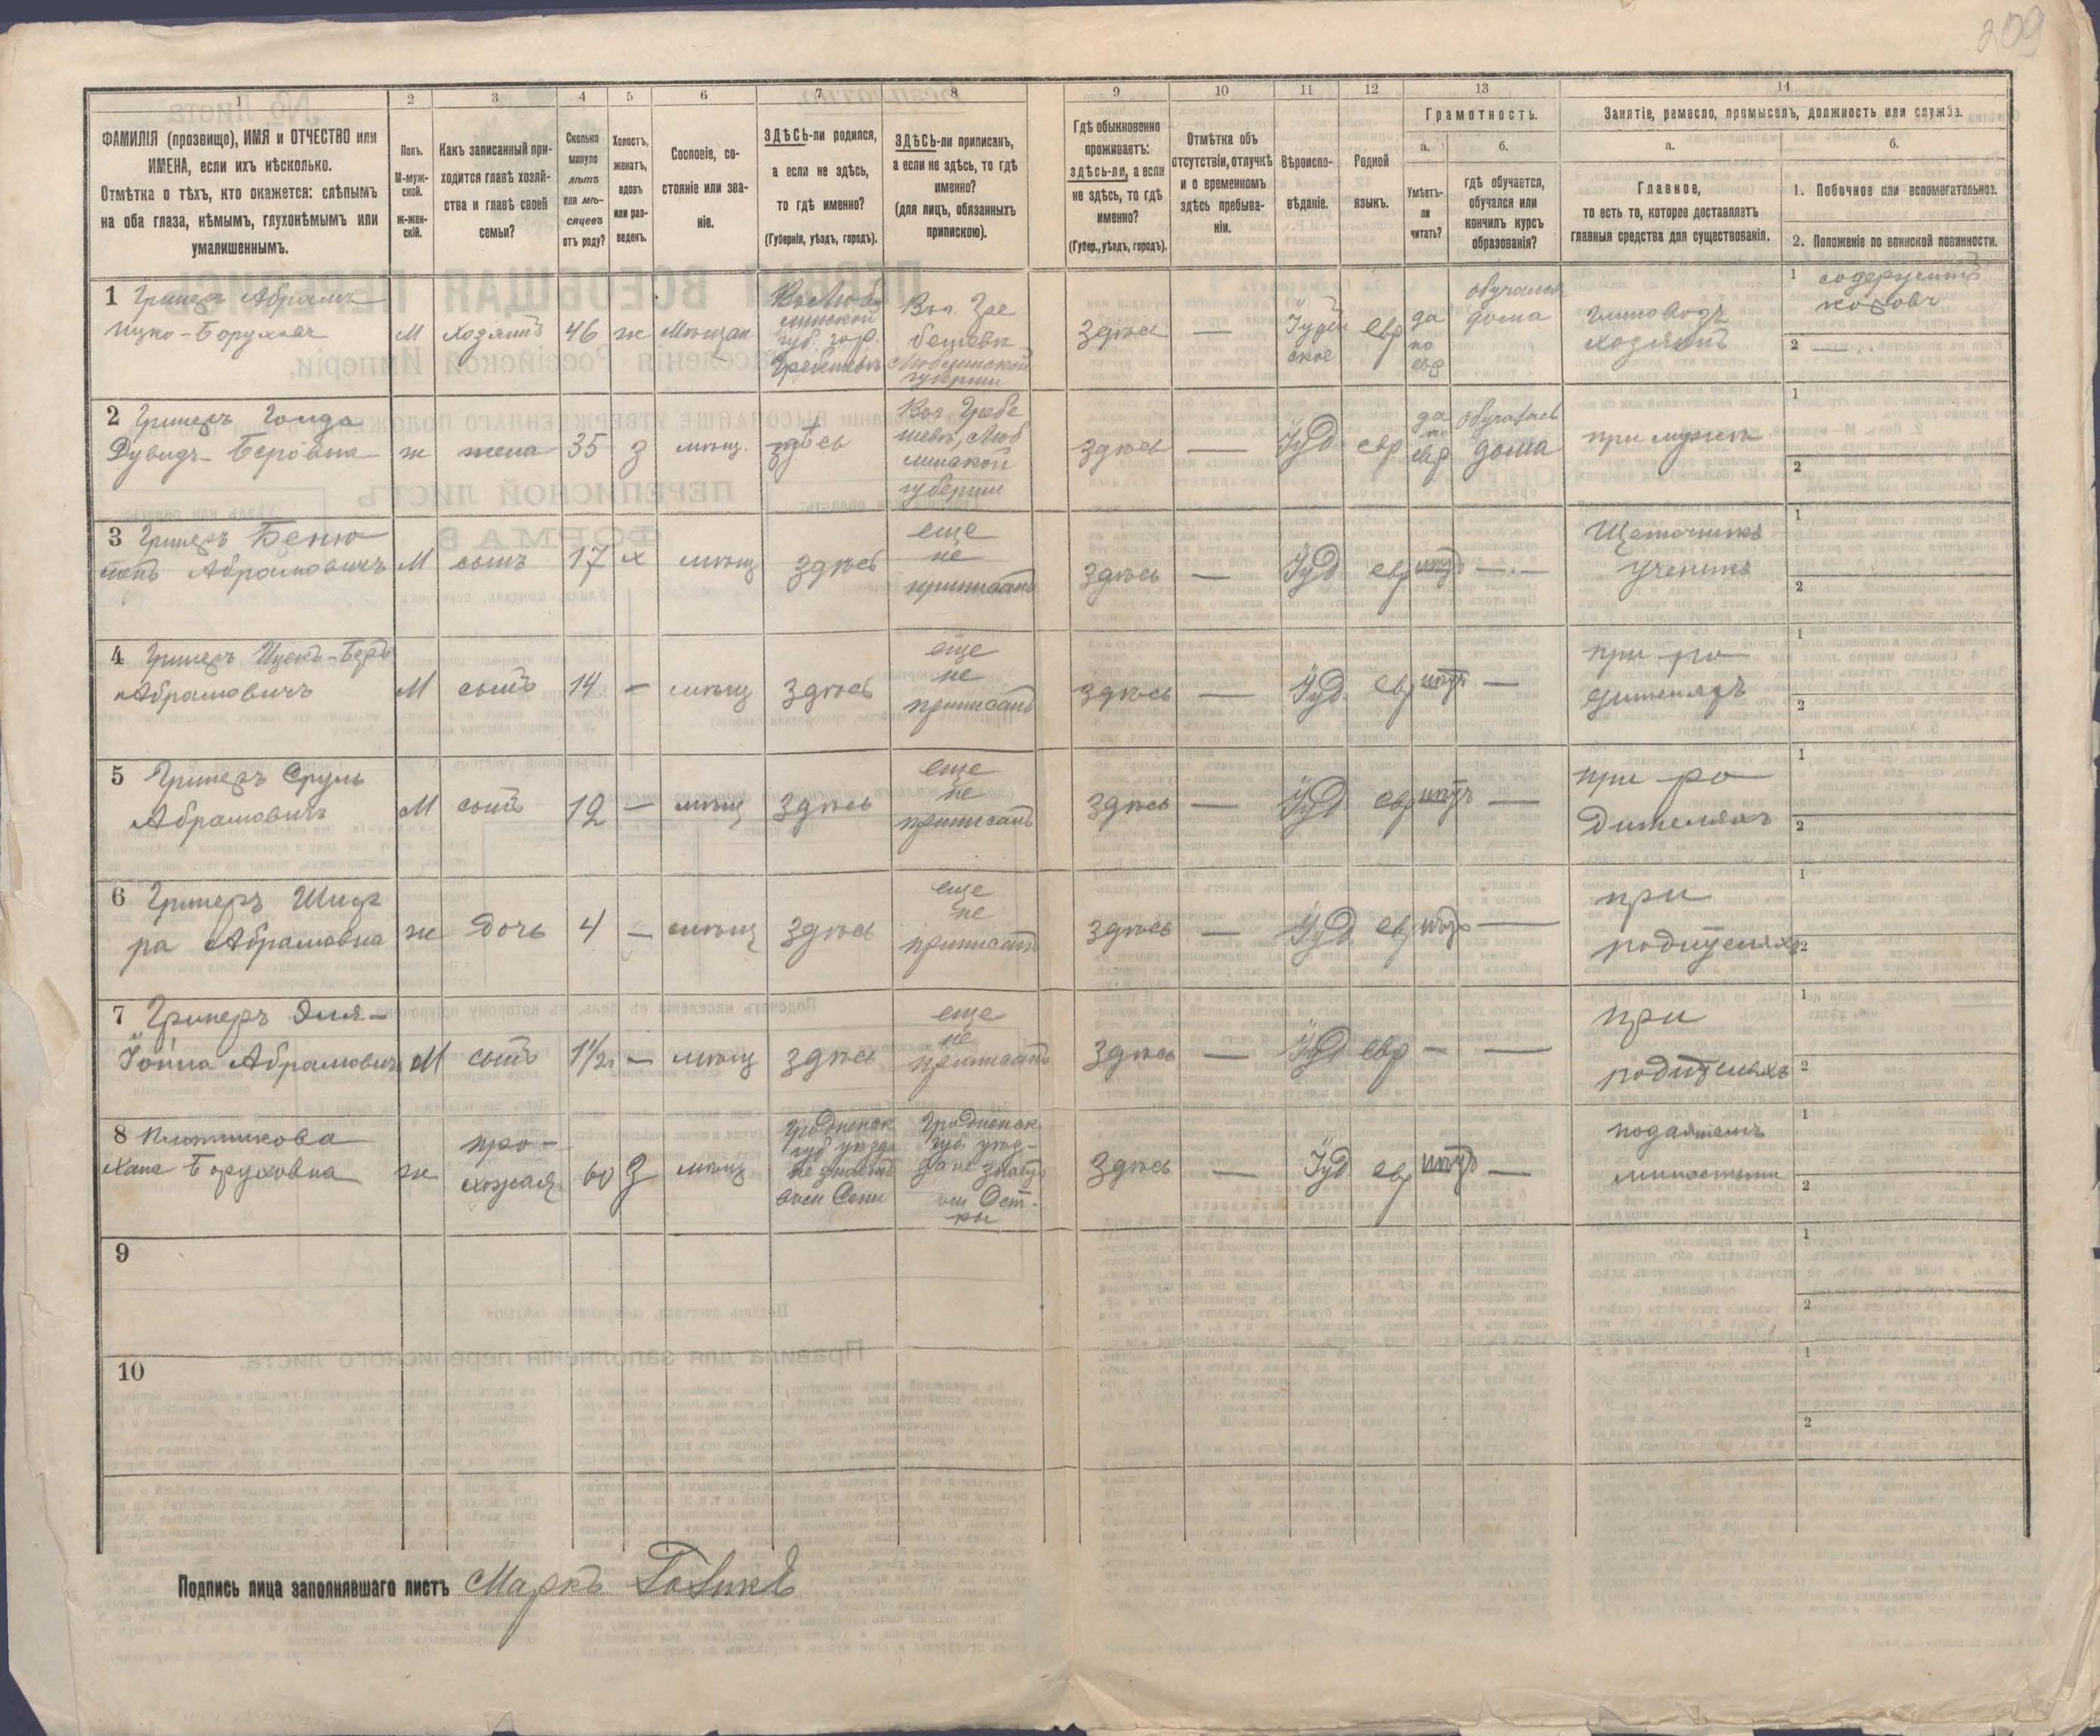 209
1
2
3
4
5
6
7
8
9
10
11
12
13
14
ФАМИЛІЯ (прозвище), ИМЯ и ОТЧЕСТВО или
ИМЕНА, если ихъ нѣсколько.
Отмѣтка о тѣхъ, кто окажется: слѣпымъ
на оба глаза, нѣмымъ, глухонѣмымъ или
умалишеннымъ.
Полъ.
М-муж-
ской.
ж-жен-
скій.
Какъ записанный при-
ходится главѣ хозяй-
ства и главѣ своей
семьи?
Сколько
минуло
лѣтъ
или мѣ-
сяцевъ
отъ роду?
Холостъ,
женатъ,
вдовъ
или раз-
веденъ.
Сословіе, со-
стояніе или зва-
ніе.
ЗДѢСЬ-ли родился,
а если не здѣсь,
то гдѣ именно?
(Губернія, уѣздъ, городъ).
ЗДѢСЬ-ли приписанъ,
а если не здѣсь, то гдѣ
именно?
(для лицъ, обязанныхъ
припискою).
Гдѣ обыкновенно
проживаетъ:
здѣсь-ли, а если
не здѣсь, то гдѣ
именно?
(Губер., уѣздъ, городъ).
Отмѣтка объ
отсутствіи, отлучкѣ
и о временномъ
здѣсь пребыва-
ніи.
Вѣроиспо-
вѣданіе.
Родной
языкъ.
Грамотность.
а.
Умѣетъ-
ли
читать?
б.
гдѣ обучается,
обучался или
кончилъ курсъ
образованія?
Занятіе, ремесло, промыселъ, должность или служба.
а.
Главное,
то есть то, которое доставляетъ
главныя средства для существованія.
б.
1. Побочное или вспомогательное.
2. Положеніе по воинской повинности.
1 Гринеръ Абрамъ
Ицко-Боруховъ
М
Хозяинъ
46
ж
Мѣщан
губ. гор.
Люблинской
губерніи
здѣсь
—
Іудей
ское
евр
да
по
евр
обучался
дома
хозяинъ
1 содержитъ
коровъ
2 —
2 Гринеръ Голда
Дувидъ-Беровна
ж
жена
35
З
мѣщ.
здѣсь
губерніи
здѣсь
—
Іуд
евр
да
по
евр
обучалась
дома
при мужѣ
1
2
3 Гринеръ Беню
минъ Абрамовичъ
М
сынъ
17
х
мѣщ
здѣсь
еще
не
приписанъ
здѣсь
—
Іуд
евр
нѣтъ
—
Щеточникъ
ученикъ
1
2
4 Гринеръ Ицекъ-Беръ
Абрамовичъ
М
сынъ
14
—
мѣщ
здѣсь
еще
не
приписанъ
здѣсь
—
Іуд
евр
нѣтъ
—
при ро
дителяхъ
1
2
5 Гринеръ Сруль
Абрамовичъ
М
сынъ
12
—
мѣщ
здѣсь
еще
не
приписанъ
здѣсь
—
Іуд
евр
нѣтъ
—
при ро
дителяхъ
1
2
6 Гринеръ Шиф
ра Абрамовна
ж
дочь
4
—
мѣщ
здѣсь
еще
не
приписан
здѣсь
—
Іуд
евр
нѣтъ
—
при
родителяхъ
1
2
7 Гринеръ Эля-
Іойна Абрамович
М
сынъ
1 1/2
—
мѣщ
здѣсь
еще
не
приписанъ
здѣсь
—
Іуд
евр
—
—
при
родителяхъ
1
2
8 Плотникова
Хана Боруховна
ж
про-
хожая
60
З
мѣщ
Гродненск
губ уѣзда
не знаетъ
Гродненск
губ уѣз-
да не знает
здѣсь
—
Іуд
евр
нѣтъ
—
милостыни
1
2
9
1
2
10
1
2
Подпись лица заполнявшаго листъ Маркъ